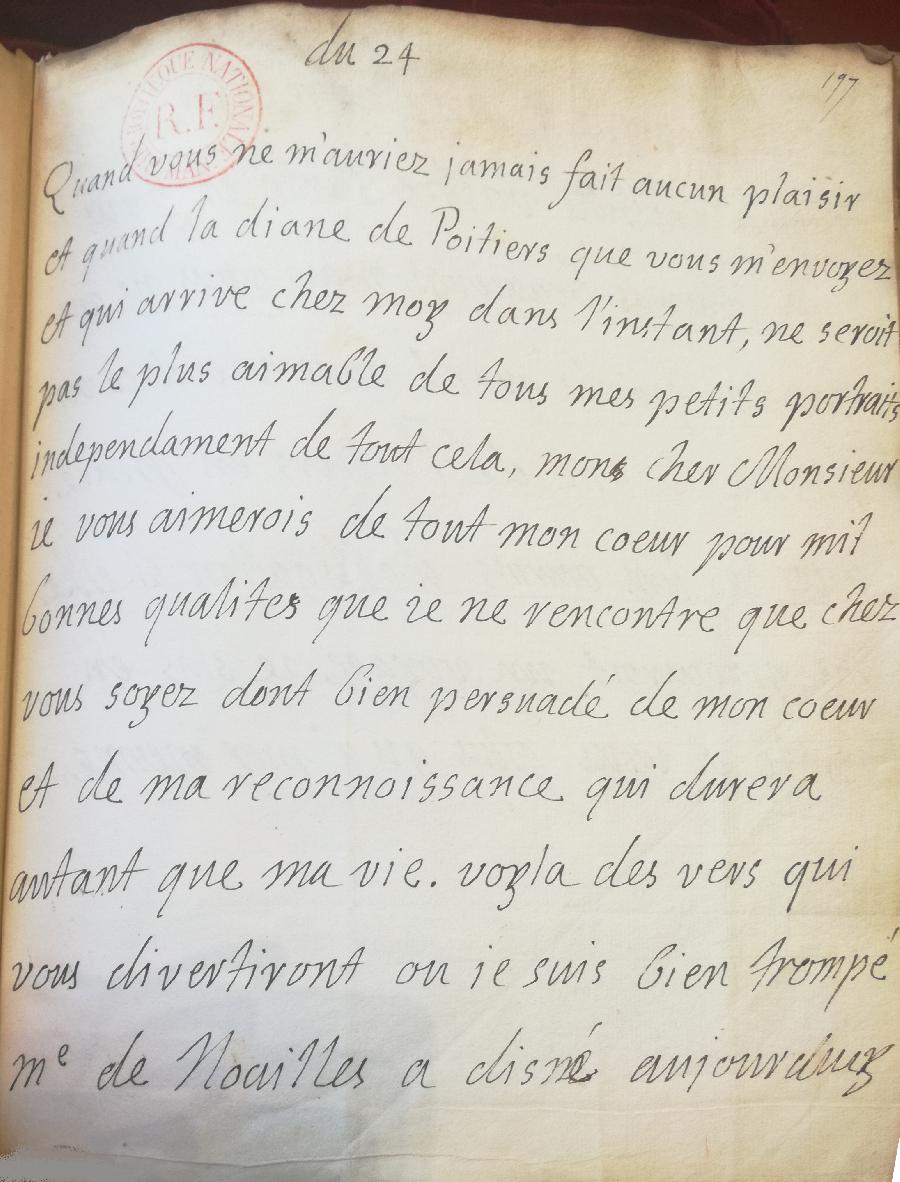 du 24
197
BIBLIOTHEQUE NATIONALE MAN.
R.F.
Quand vous ne m'auriez jamais fait aucun plaisir
et quand la diane de Poitiers que vous m'envoyez
et qui arrive chez moy dans l'instant, ne seroit
pas le plus aimable de tous mes petits portraits
independament de tout cela, mon cher Monsieur
ie vous aimerois de tout mon coeur pour mil
bonnes qualites que ie ne rencontre que chez
vous soyez dont bien persuadé de mon coeur
et de ma reconnoissance qui durera
autant que ma vie. voyla des vers qui
vous divertiront ou ie suis bien trompé
me de Noailles a disné aujourduy